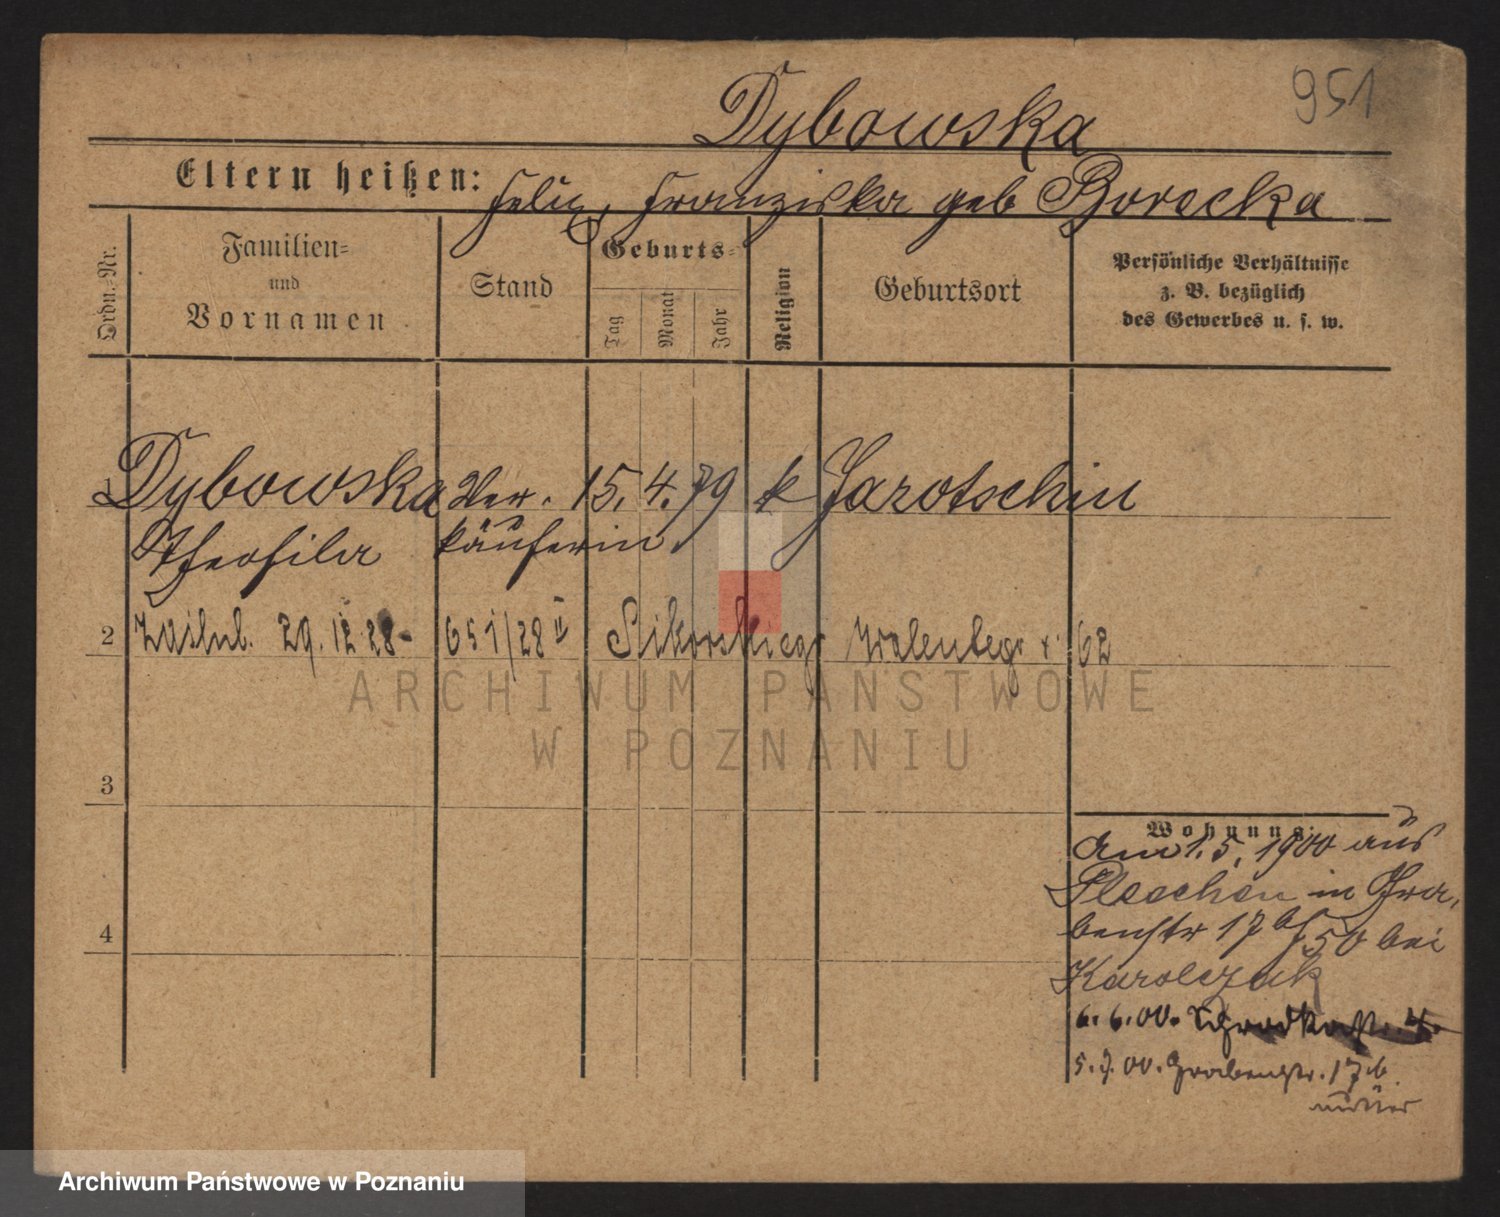 951
Dybowska
Eltern heißen: Felix, Franziska geb Borecka
Ordn.-Nr.
Familien-
und
Vornamen
Stand
Geburts-
Tag
Monat
Jahr
Religion
Geburtsort
Persönliche Verhältnisse
z. B. bezüglich
des Gewerbes u. s. w.
1 Dybowska Ver- 15. 4. 79 k Jarotschin
Theofila käuferin
2 29. 12 28 651/28 II Sikorskiego Walentego 62
3
4
Wohnung:
Am 1. 5. 1900 aus
Pleschen in Gra-
benstr 17 bei
Karolczak
6. 6. 00. Schrodkastr. 4.
5. 7. 00. Grabenstr. 17b
Archiwum Państwowe w Poznaniu
ARCHIWUM PAŃSTWOWE
W POZNANIU